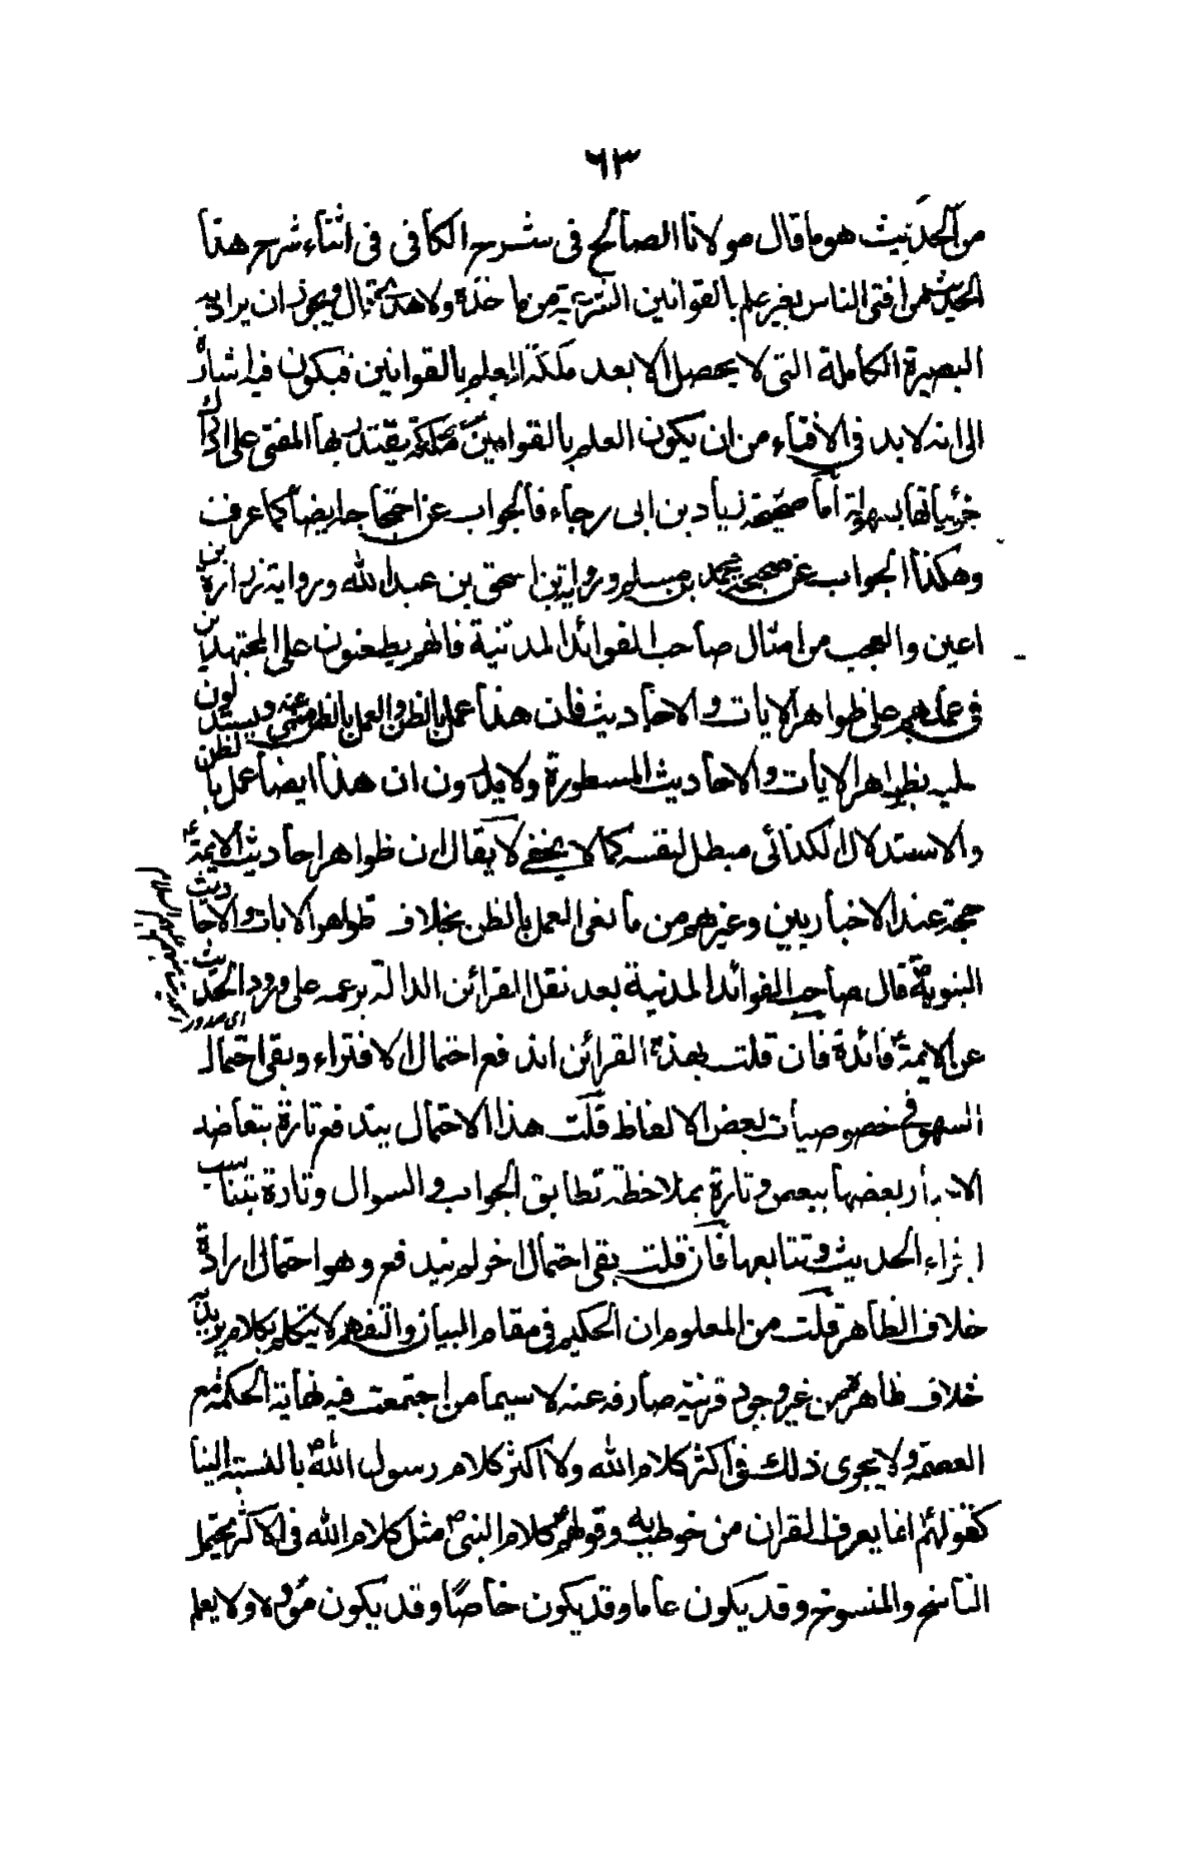 ٦٣
من الحديث هو ما قال مولانا الصالح فى شرح الكافى فى اثناء شرح هذا
الحديث من افتى الناس بغير علم بالقوانين الشرعية من ماخذه ولا هدى قال ويجوز ان يراد به
البصيرة الكاملة التى لا يحصل الا بعد ملكة العلم بالقوانين فيكون فيه اشارة
الى انه لا بد فى الافتاء من ان يكون العلم بالقوانين ملكة يقتدر بها المفتى على ادراك
جزئياتها بسهولة اما صحيحة زياد بن ابى رجاء فالجواب عن احتجاجها ايضا كما عرفت
وهكذا الجواب عن صحيحة محمد بن مسلم ورواية اسحق بن عبد الله ورواية زرارة بن
اعين والعجب من امثال صاحب الفوائد المدنية فانهم يطعنون على المجتهدين
فى عملهم على ظواهر الايات والاحاديث فان هذا عمل بالظن والعمل بالظن منهى عنه ويستدلون
عليه بظواهر الايات والاحاديث المسطورة ولا يدرون ان هذا ايضا عمل بالظن
والاستدلال الكذائى مبطل لنفسه كما لا يخفى لا يقال ان ظواهر احاديث الايمة ع
حجة عند الاخباريين وغيرهم من مانعى العمل بالظن بخلاف ظواهر الايات والاحاديث
النبوية ص قال صاحب الفوائد المدنية بعد نقل القرائن الدالة بزعمه على ورود الحديث
اى صدور
عن الايمة ع فائدة فان قلت بهذه القرائن اندفع احتمال الافتراء وبقى احتمال
السهو فى خصوصيات بعض الالفاظ قلت هذا الاحتمال يندفع تارة بتعاضد
الاخبار بعضها ببعض وتارة بملاحظة تطابق الجواب والسوال وتارة بتناسب
اجزاء الحديث وتتابعها فان قلت بقى احتمال اخر لم يندفع وهو احتمال ارادة
خلاف الظاهر قلت من المعلوم ان الحكيم فى مقام البيان والتفهيم لا يتكلم بكلام يريد به
خلاف ظاهره من غير وجود قرينة صارفه عنه لا سيما من اجتمعت فيه نهاية الحكمة مع
العصمة ولا يجرى ذلك فى اكثر كلام الله ولا اكثر كلام رسول الله ص بالنسبة الينا
كقولهم ع انما يعرف القران من خوطب به وقولهم ع كلام النبى ص مثل كلام الله فى الاكثر يحتمل
الناسخ والمنسوخ وقد يكون عاما وقد يكون خاصا وقد يكون مؤولا ولا يعلم